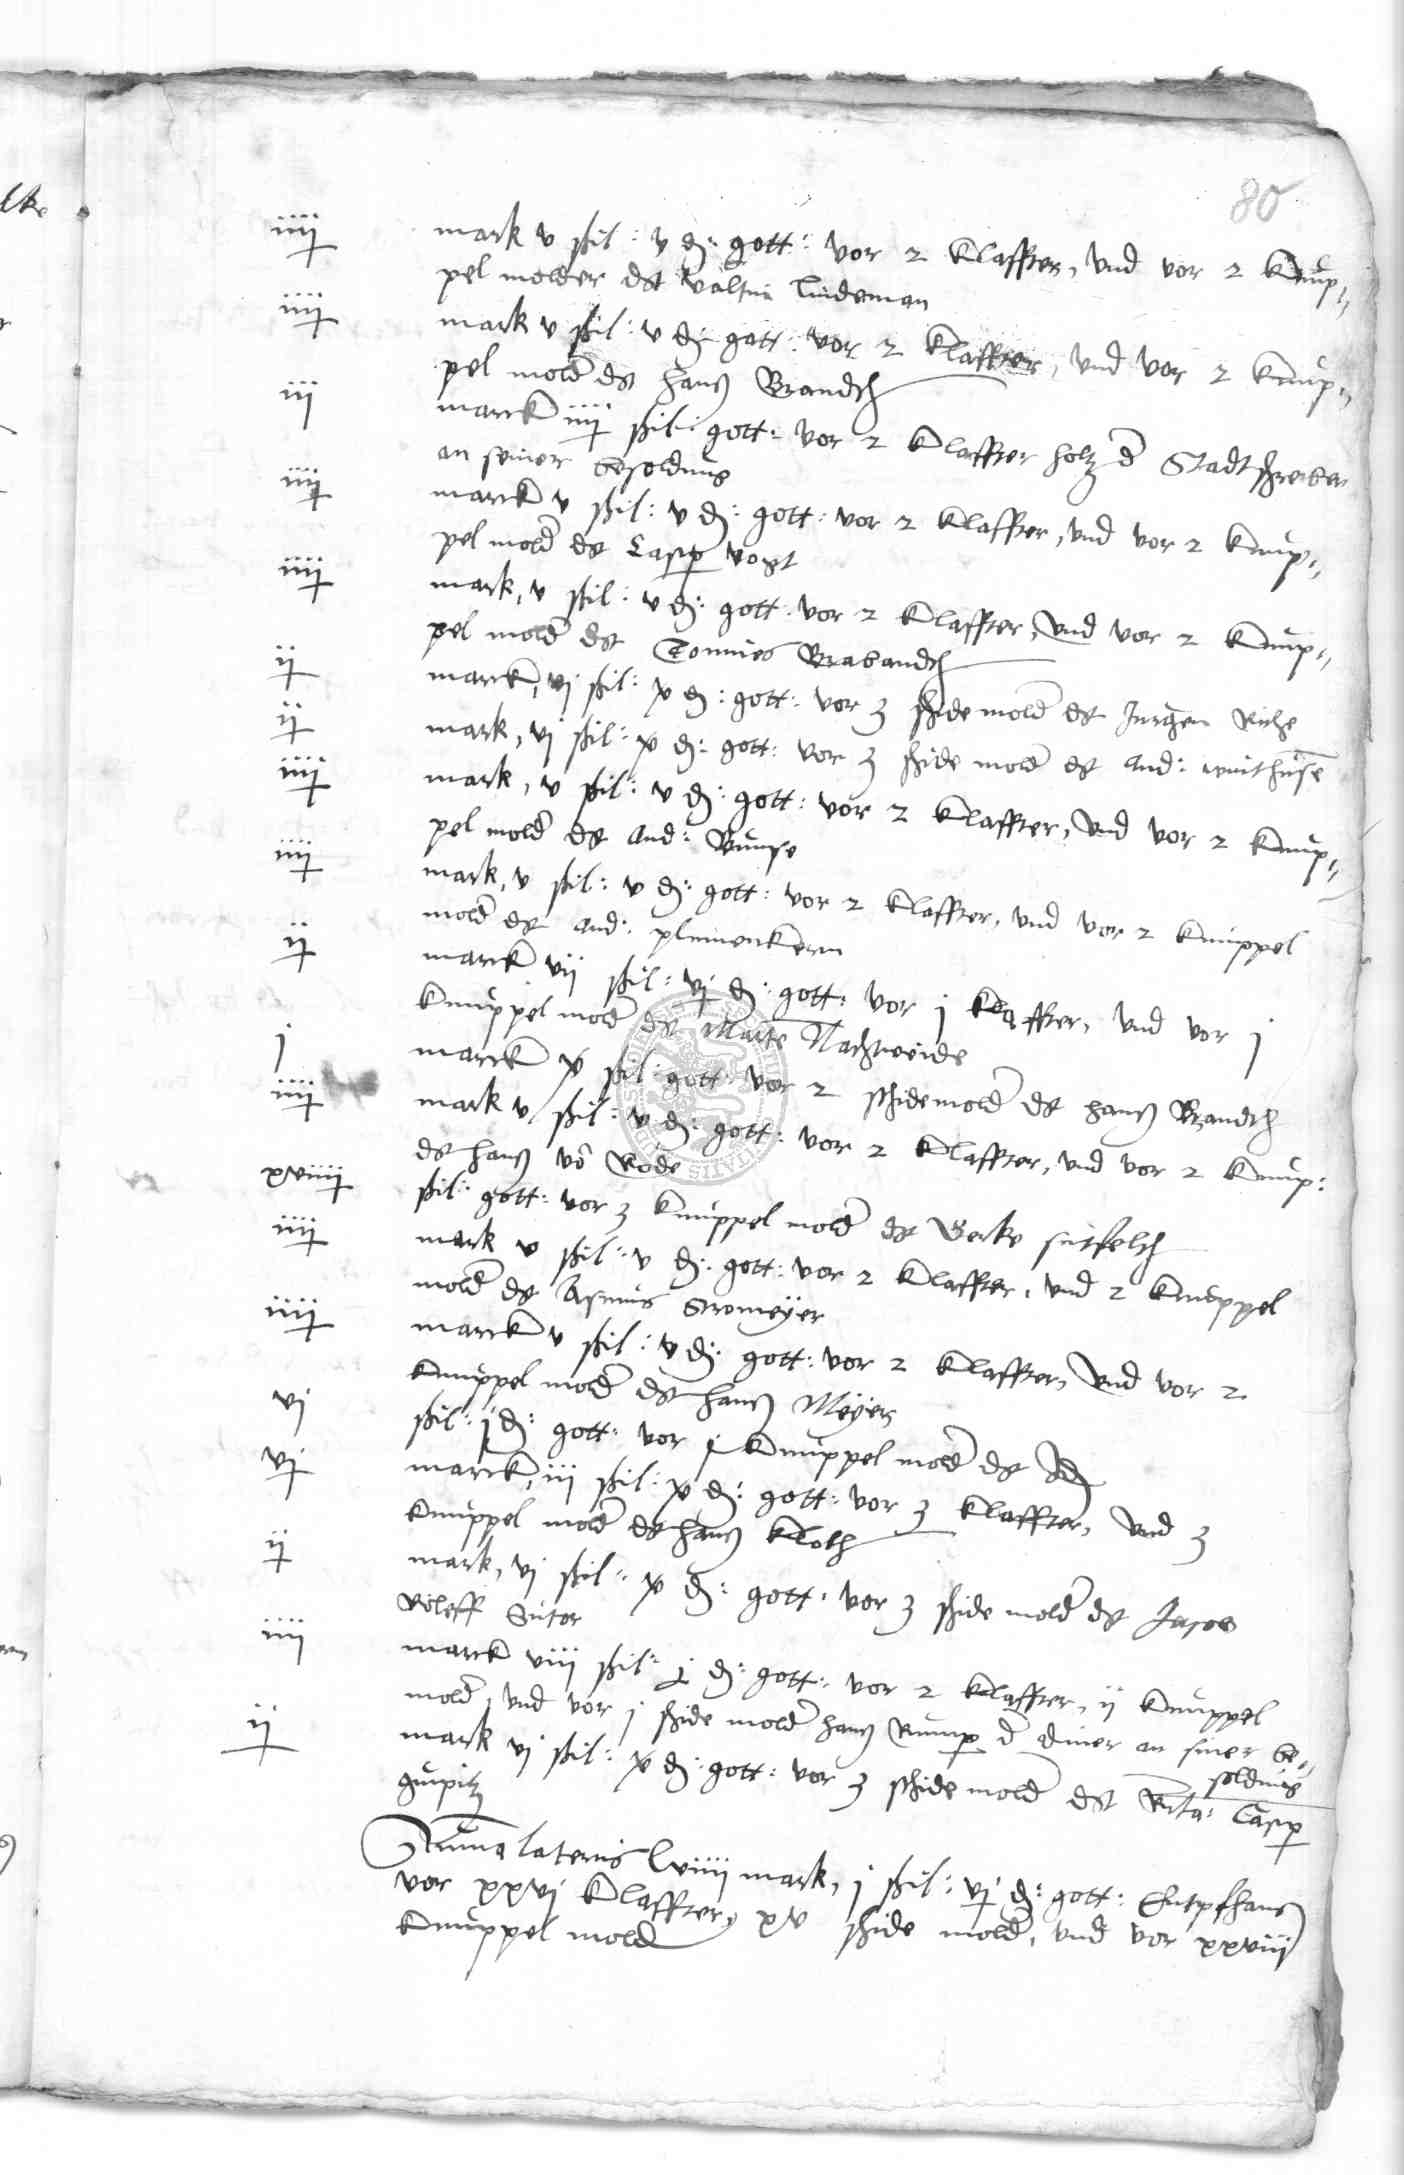 80
iiij mark v ßil: v ₰: gott: vor 2 Klaffter, vnd vor 2 Knup=
pel molder dt Valtin Lindeman
iiij mark v ßil: v ₰: gott: vor 2 Klaffter, vnd vor 2 Knup=
pel mold dt Hans Brandt
iij marck iiij ßil: gott: vor 2 Klaffter holtz d Stadtschreiber
an seiner besoldung
iiij marck v ßil: v ₰: gott: vor 2 Klaffter, vnd vor 2 Knup=
pel mold dt Casp Vogt
iiij mark, v ßil: v ₰: gott: vor 2 Klaffter, vnd vor 2 Knup=
pel mold dt Tonnies Brabandt
ij marck, vj ßil: x ₰: gott: vor 3 schide mold dt Jurgen
ij mark, vj ßil: x ₰: gott: vor 3 schide mold dt And:
iiij mark, v ßil: v ₰: gott: vor 2 Klaffter, vnd vor 2 Knup=
pel mold dt And:
iiij mark, v ßil: v ₰: gott: vor 2 Klaffter, vnd vor 2 Knuppel
mold dt And:
ij marck vij ßil: vj ₰: gott: vor j Klaffter, vnd vor j
Knuppel mold dt Marten Nachtweide
j marck x ßil: gott: vor 2 schide mold dt Hans Brandt
iiij mark v ßil: v ₰: gott: vor 2 Klaffter, vnd vor 2 Knup:
dt Hans vo Rode
xviiij ßil: gott: vor 3 Knuppel mold dt
iiij mark v ßil: v ₰: gott: vor 2 Klaffter, vnd 2 Knuppel
mold dt Asmus Stromeyer
iiij marck v ßil: v ₰: gott: vor 2 Klaffter, vnd vor 2
Knuppel mold dt Hans Meyer
vj ßil: j ₰: gott: vor j Knuppel mold dt Id
vj marck, iij ßil: x ₰: gott: vor 3 Klaffter, vnd 3
Knuppel mold dt Hans Kloth
ij mark, vj ßil: x ₰: gott: vor 3 schide mold dt Jacob
Roleff Sutor
iiij marck viij ßil: j ₰: gott: vor 2 Klaffter, ij Knuppel
mold, vnd vor j schide mold Hans d diner an siner be=
soldung
ij mark vj ßil: x ₰: gott: vor 3 schide mold dt Casp
Suma lateris lviiij mark, j ßil: vj ₰: gott: Entpfhan
vor xxvj Klaffter, xv schide mold, vnd vor xxviij
Knuppel mold